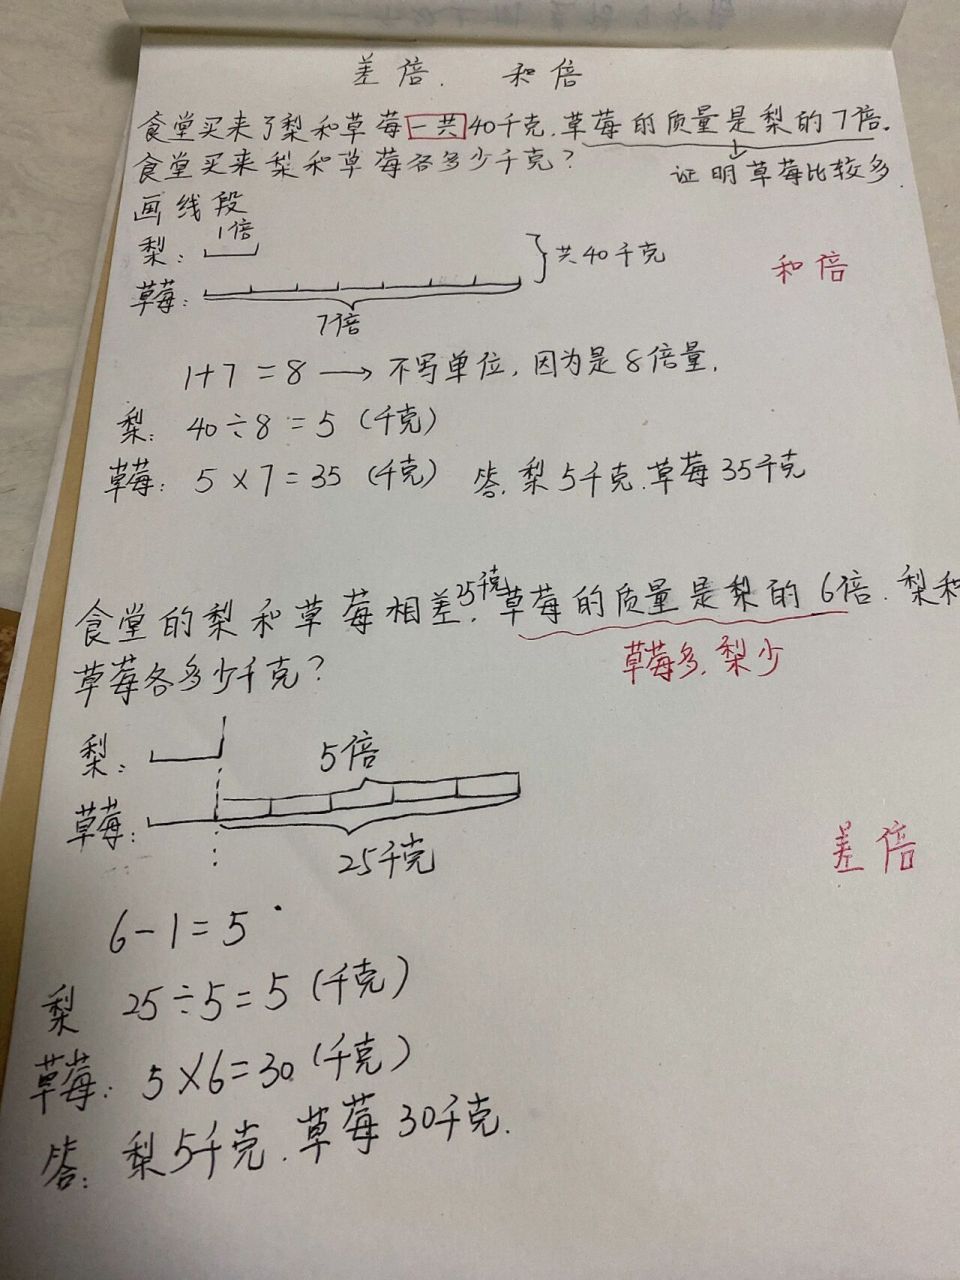 差倍. 和倍
食堂买来了梨和草莓一共40千克.草莓的质量是梨的7倍.
食堂买来梨和草莓各多少千克?
证明草莓比较多.
画线段
1倍
梨:
共40千克
和倍
草莓:
7倍
1+7=8→不写单位,因为是8倍量.
梨: 40÷8=5(千克)
草莓: 5×7=35(千克) 答.梨5千克.草莓35千克
食堂的梨和草莓相差25千克.草莓的质量是梨的6倍.梨和
草莓多.梨少
草莓各多少千克?
梨:
5倍
草莓:
25千克
差倍
6-1=5
梨 25÷5=5(千克)
草莓: 5×6=30(千克)
答: 梨5千克.草莓30千克.